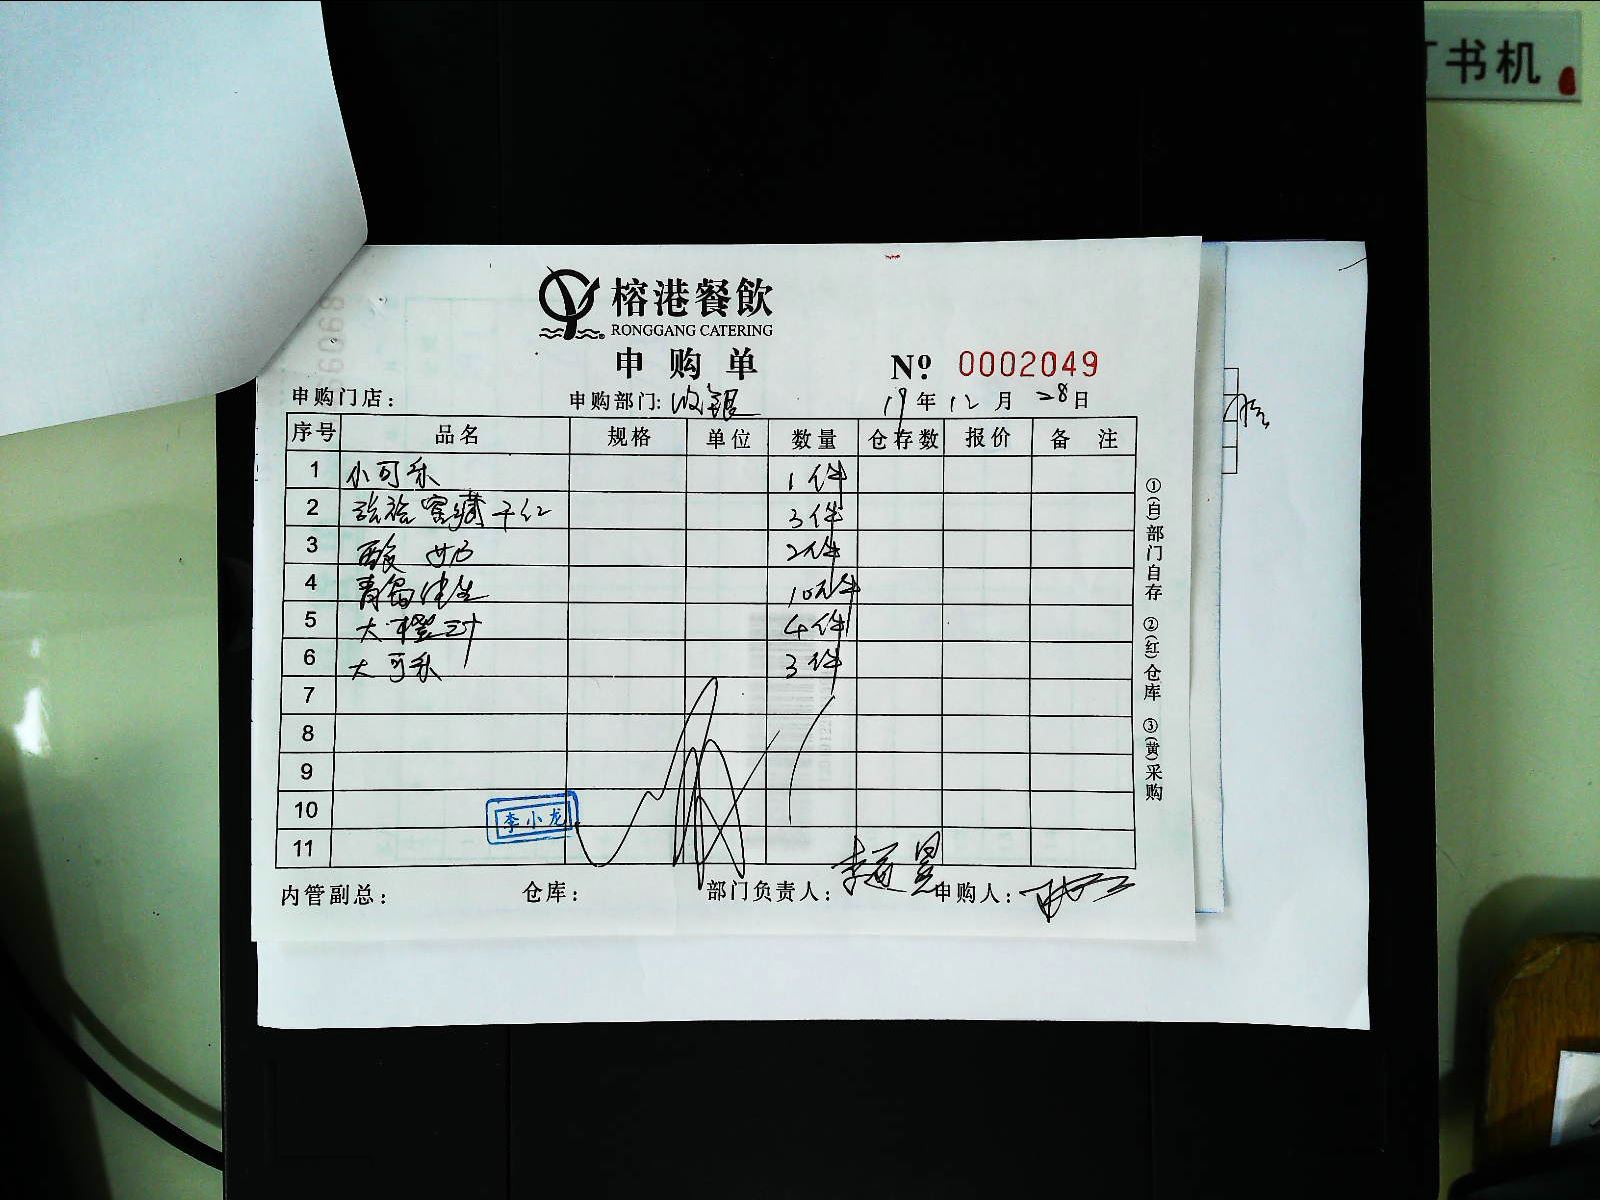 书机
榕港餐飲
RONGGANG CATERING
申购单
Nº: 0002049
申购门店： 申购部门: 收银 19年12月28日
序号 品名 规格 单位 数量 仓存数 报价 备 注
1 小可乐 1件
2 张裕窖藏干红 3件
3 酸奶 2件
4 青岛 10件
5 大橙汁 4件
6 大可乐 3件
7
8
9
10
11
李小龙
内管副总： 仓库： 部门负责人： 申购人：
①(白)部门自存 ②(红)仓库 ③(黄)采购